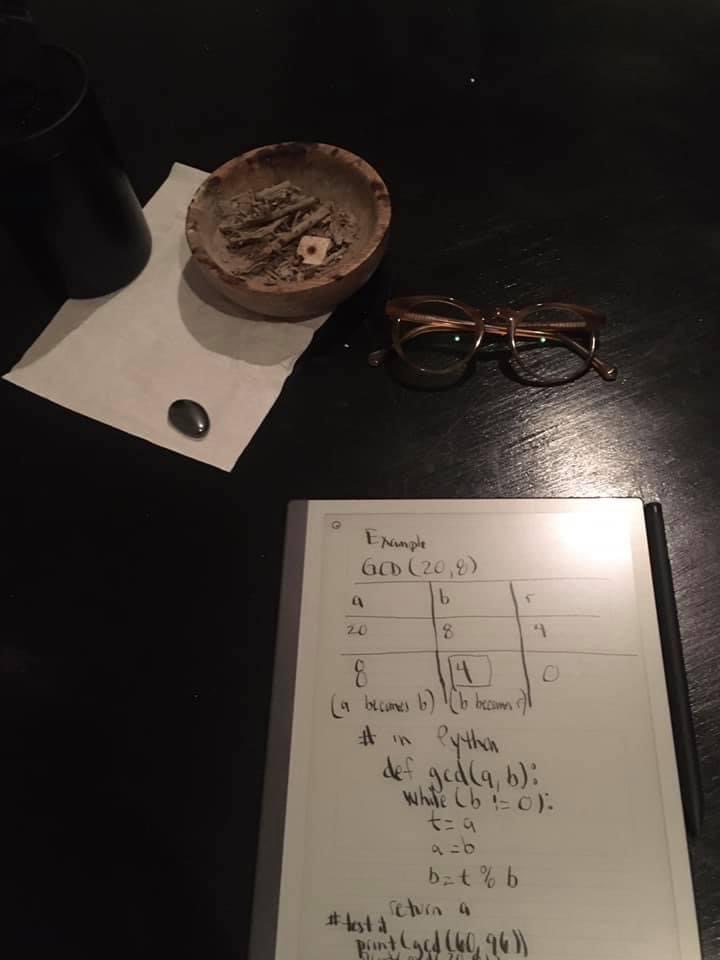 Example
GCD(20,8)
a b r
20 8 4
8 4 0
(a becomes b) (b becomes r)
# in Python
def gcd(a, b):
while (b != 0):
t = a
a = b
b = t % b
return a
# test it
print(gcd(60,96))